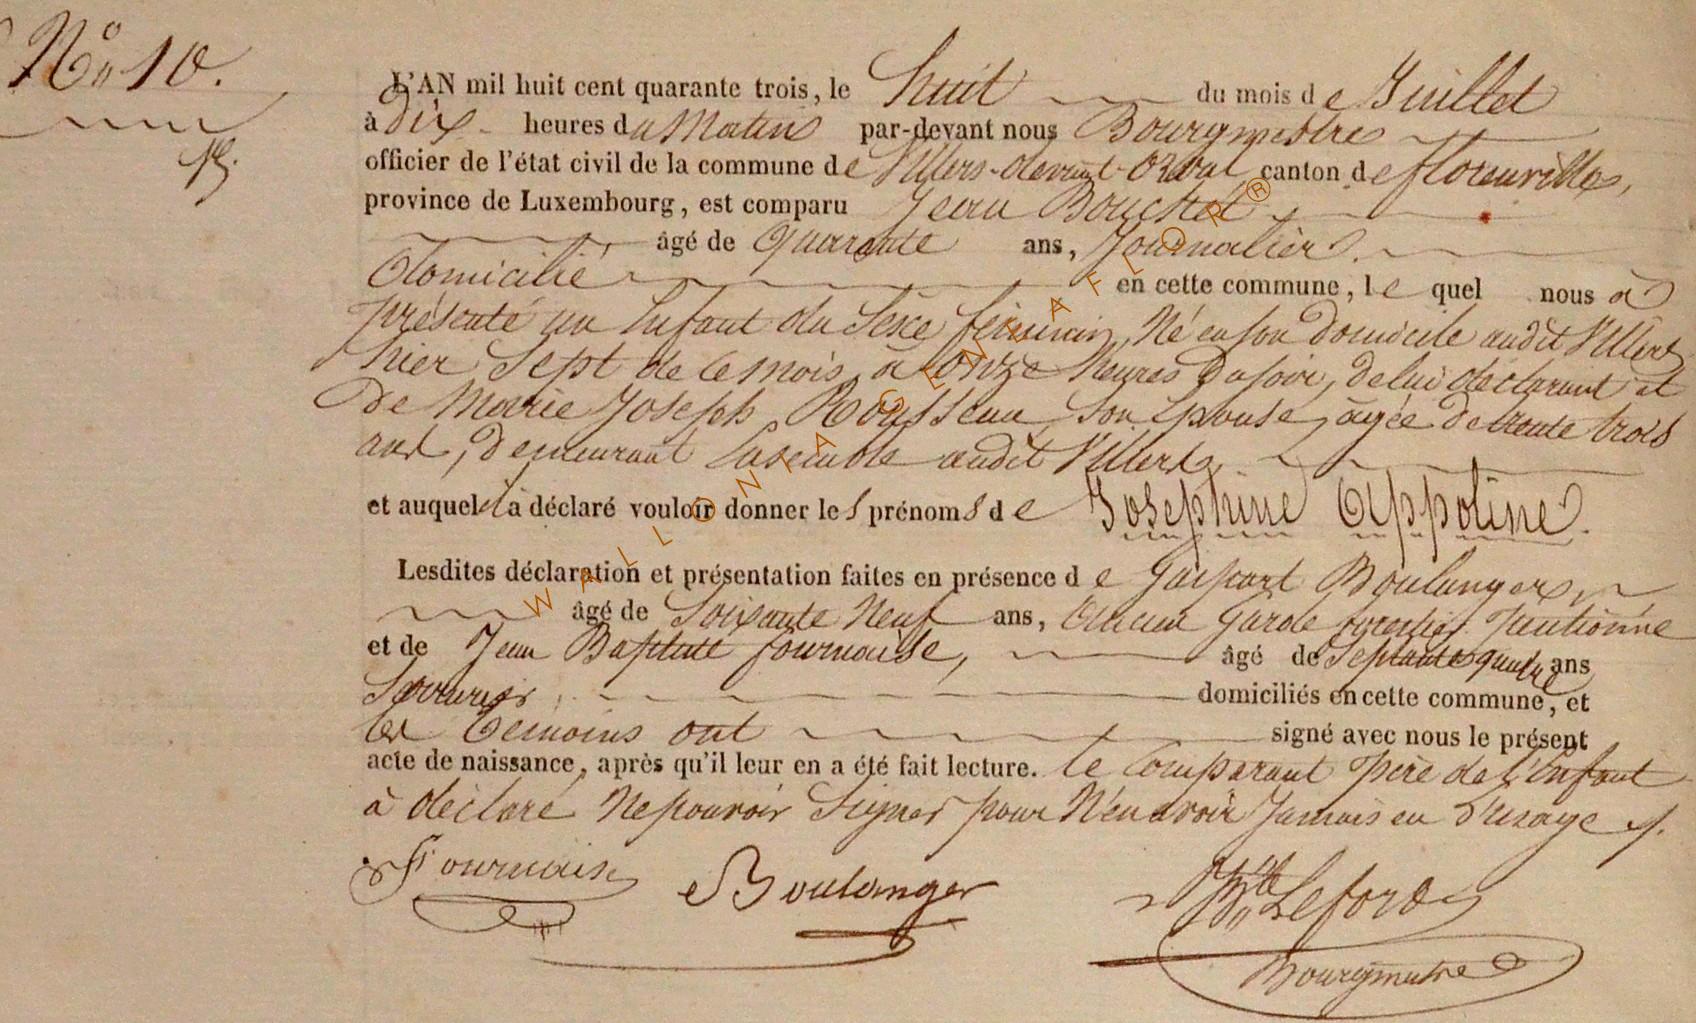 N° 10.
L'AN mil huit cent quarante trois, le huit du mois de Juillet
à Dix heures du Matin par-devant nous Bourgmestre
officier de l'état civil de la commune de Villers-devant-Orval canton de florenville,
province de Luxembourg, est comparu Jean Bouchet
âgé de Quarante ans, Journalier.
Domicilié en cette commune, le quel nous à
présenté un Enfant du Sexe féminin, Né en son Domicile audit Villers
hier Sept de ce mois, à onze heures Du soir, de lui déclarant et
De Marie Joseph Rousseau son Epouse, agée de trente trois
ans, Demeurant Ensemble audit Villers,
et auquel il a déclaré vouloir donner les prénoms de Josephine Appoline.
Lesdites déclaration et présentation faites en présence de Gaspart Boulanger,
âgé de Soixante Neuf ans, Ancien Garde forestier Pentionné
et de Jean Baptiste fournaise, âgé de Septante quatre ans
domiciliés en cette commune, et
les Temoins ont signé avec nous le présent
acte de naissance, après qu'il leur en a été fait lecture. le Comparant Père de l'Enfant
à déclaré Ne pouvoir Signer pour N'en avoir Jamais eu d'usage
Fournaise Boulanger Leford
Bourgmestre
WALLONIA GENEAFLOR®